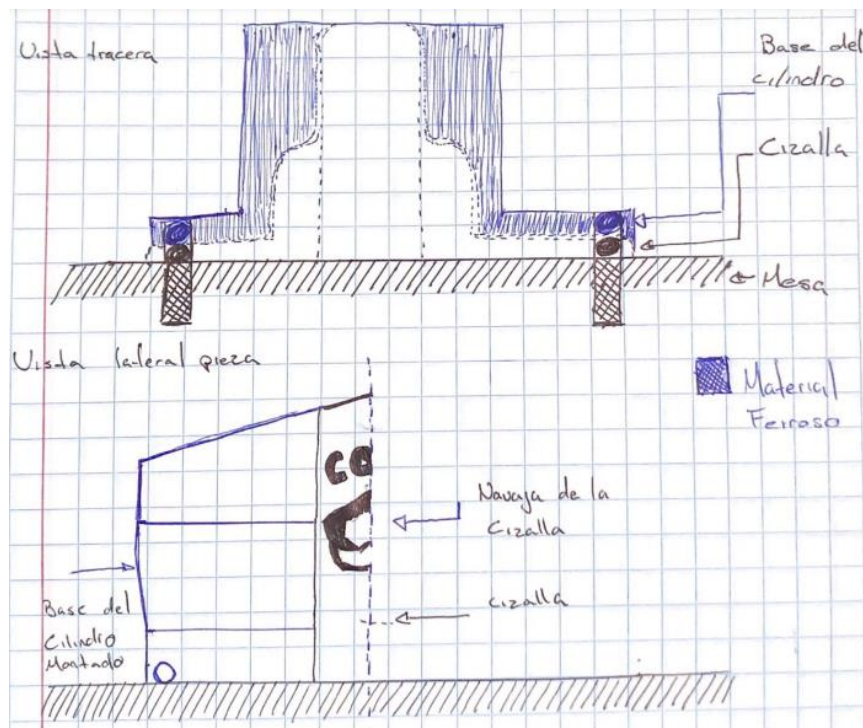 Vista tracera
Base del
cilindro
Cizalla
Mesa
Vista lateral pieza
Material
Ferroso
CO
Navaja de la
Cizalla
Cizalla
Base del
Cilindro
Montado